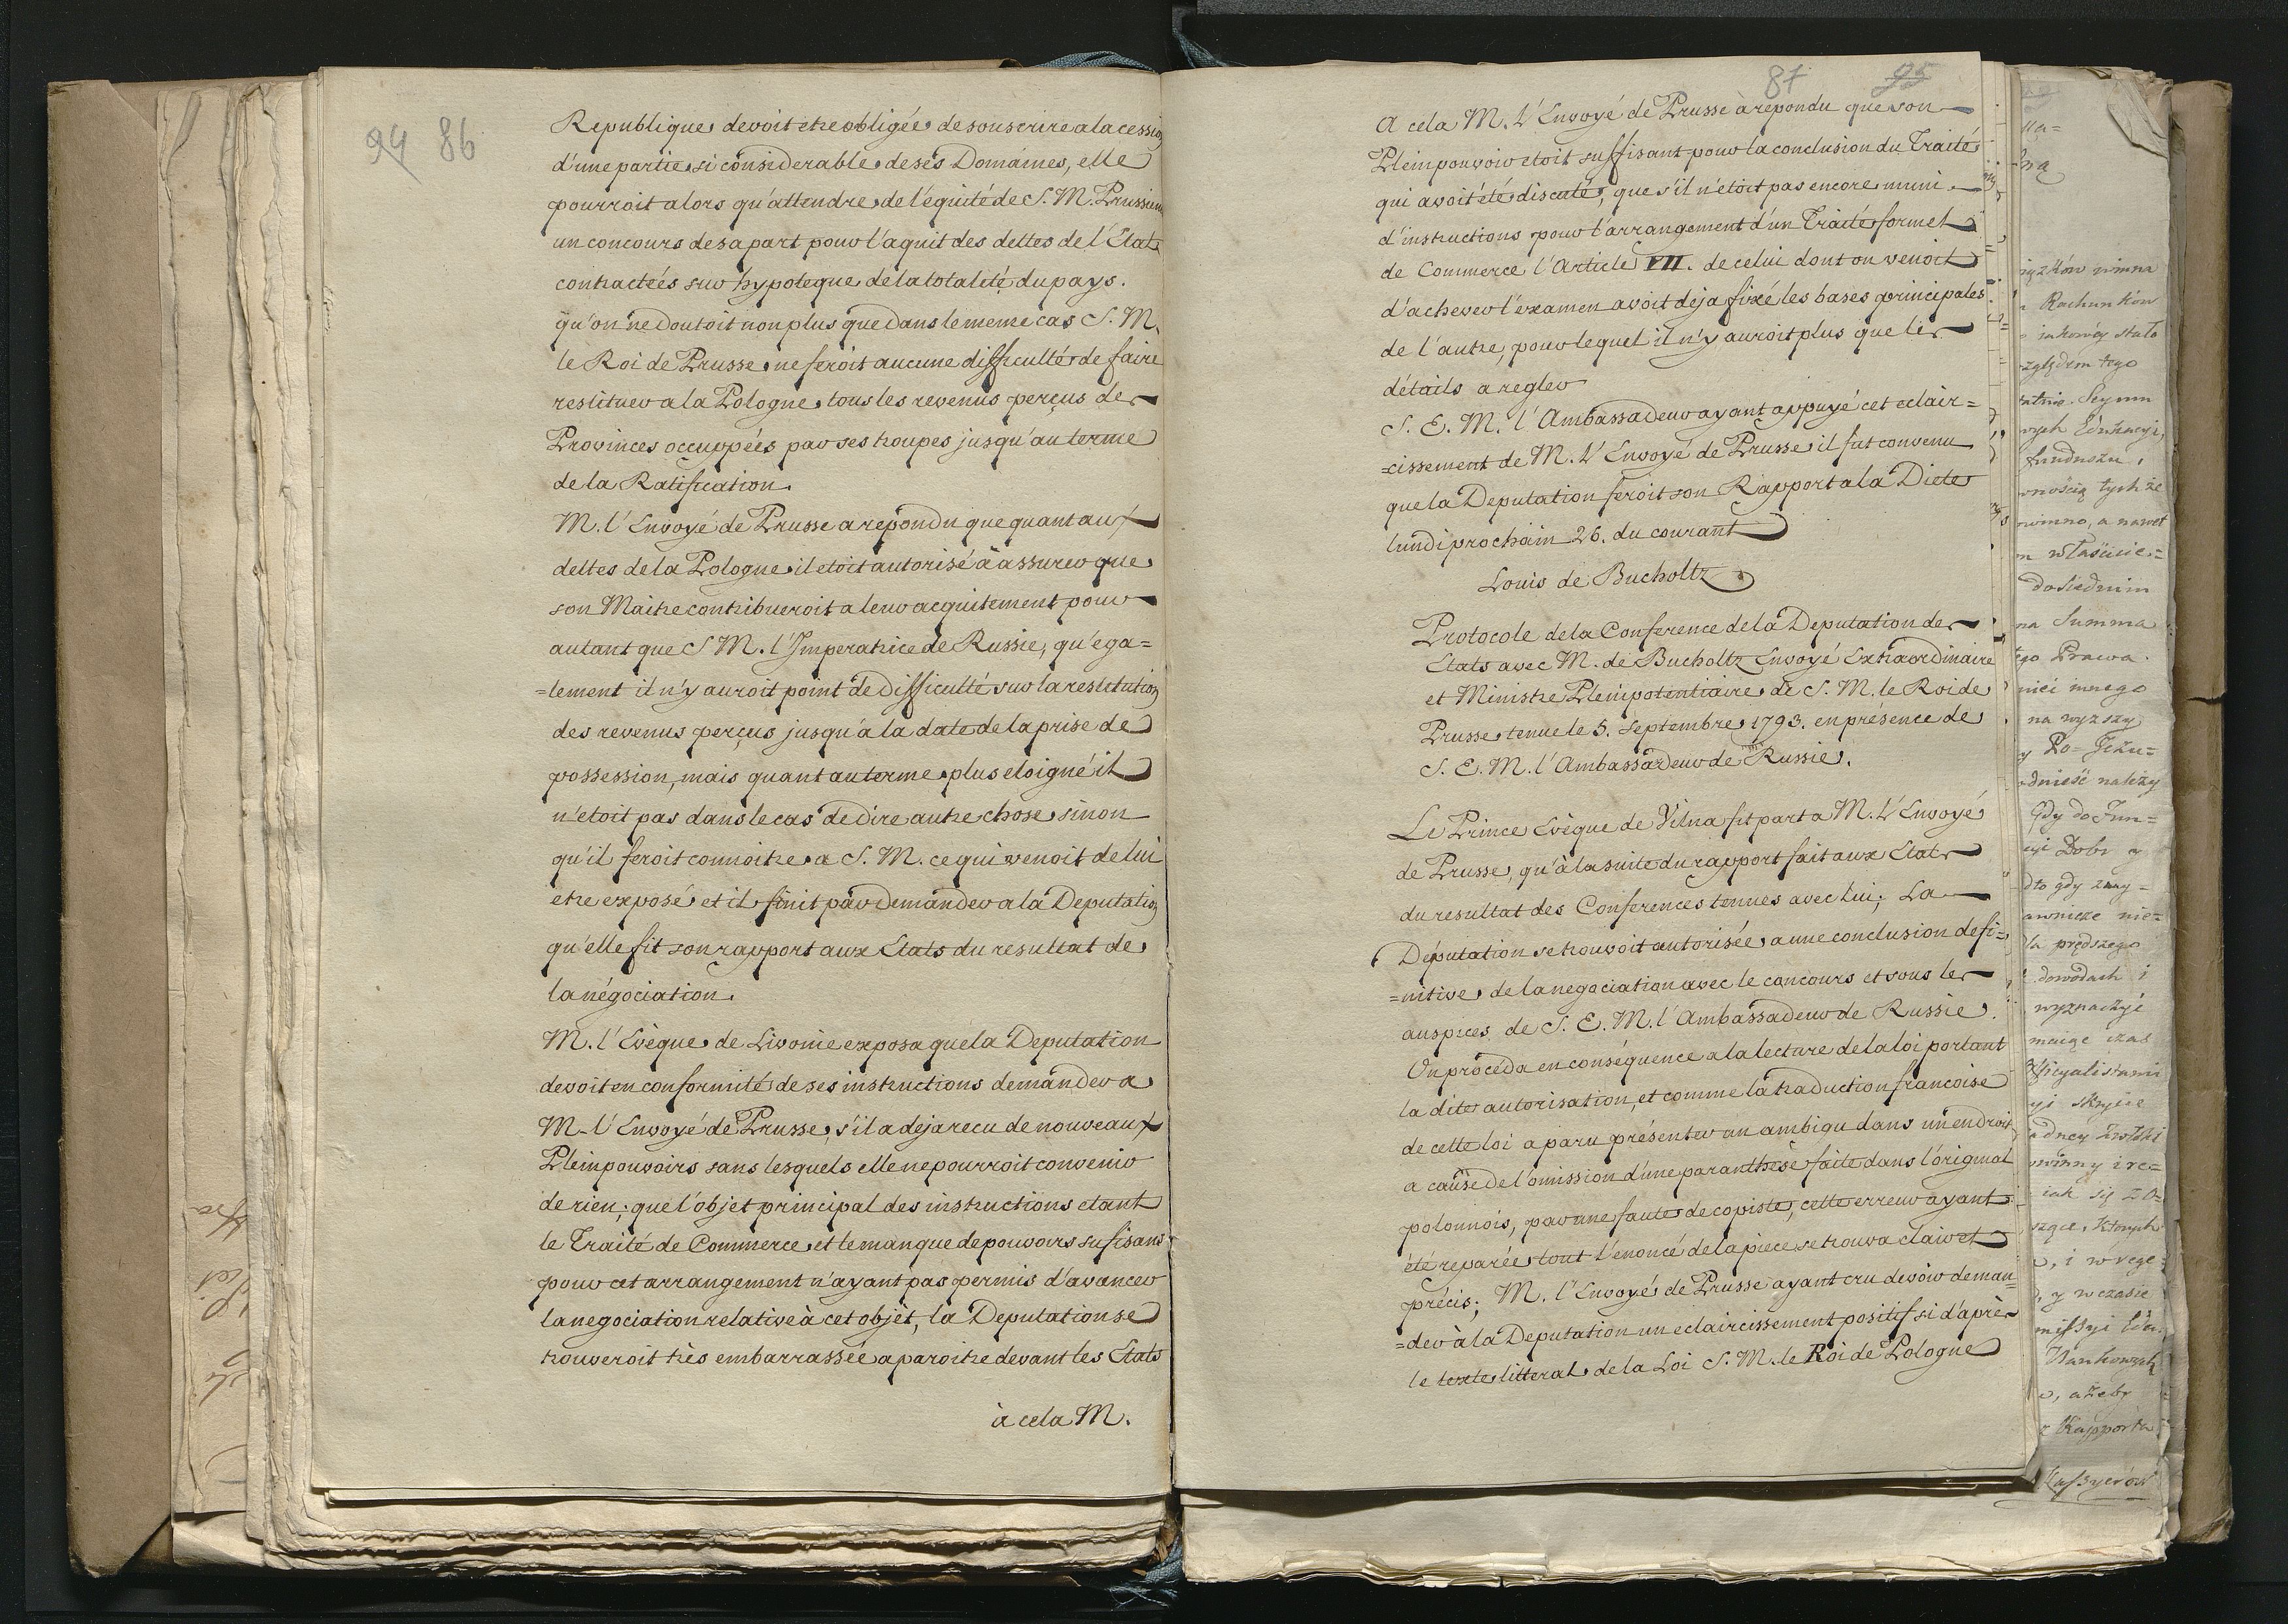 94 86
Republique devoit etre obligée de souscrire a la cession
d'une partie si considerable de ses Domaines, elle
pourroit alors qu'attendre de l'équité de S. M. Prussienne
un concours de sa part pour l'aquit des dettes de l'Etat
contractéés sur hypoteque de la totalité du pays.
qu'on ne doutoit non plus que dans le meme cas S. M.
le Roi de Prusse ne feroit aucune difficulté de faire
restituer a la Pologne tous les revenus perçus des
Provinces occuppées par ses troupes jusqu'au terme
de la Ratification.
M. l'Envoyé de Prusse a repondu que quant aux
dettes de la Pologne il etoit autorisé à assurer que
son Maitre contribueroit a leur acquitement pour
autant que S M. l'Imperatrice de Russie, qu'ega=
=lement il n'y auroit point de difficulté sur la restitution
des revenus perçus jusqu'à la date de la prise de
possession, mais quant au terme plus eloigné il
n'etoit pas dans le cas de dire autre chose sinon
qu'il feroit connoitre a S. M. ce qui venoit de lui
etre exposé et il finit par demander a la Deputation
qu'elle fit son rapport aux Etats du resultat de
la négociation.
M. l'Evêque de Livonie exposa que la Deputation
devoit en conformité de ses instructions demander a
M. l'Envoyé de Prusse, s'il a deja recu de nouveaux
Pleinpouvoirs sans lesquels elle ne pourroit convenir
de rien; que l'objet principal des instructions etant
le Traité de Commerce et le manque de pouvoirs sufisans
pour cet arrangement n'ayant pas permis d'avancer
la negociation relative à cet objèt, la Deputation se
trouveroit très embarrassée a paroitre devant les Etats
à cela M.
87 95
A cela M. L'Envoyé de Prusse à repondu que son
Pleinpouvoir etoit suffisant pour la conclusion du Traité
qui avoit été discuté, que s'il n'étoit pas encore muni
d'instructions pour l'arrangement d'un Traité formel
de Commerce l'Article VII. de celui dont on venoit
d'achever l'examen avoit deja fixé les bases principales
de l'autre, pour lequel il n'y auroit plus que les
détails a regler
S. E. M. l'Ambassadeur ayant appuyé cet eclair=
=cissement de M. L'Envoyé de Prusse il fut convenu
que la Deputation feroit son Rapport a la Diete
lundi prochain 26. du courant
Louis de Bucholtz
Protocole de la Conference de la Deputation des
Etats avec M. de Bucholtz Envoyé Extraordinaire
et Ministre Plenipotentiaire de S. M. le Roi de
Prusse tenue le 5. Septembre 1793. en présence de
S. E. M. l'Ambassadeur de Russie.
Le Prince Evêque de Vilna fit part a M. L'Envoyé
de Prusse, qu'à la suite du rapport fait aux Etats
du resultat des Conferences tenues avec lui; La
Députation se trouvoit autorisée a une conclusion defi=
=nitive de la negociation avec le concours et sous les
auspices de S. E. M. l'Ambassadeur de Russie.
On procéda en conséquence a la lecture de la loi portant
la dite autorisation, et comme la traduction francoise
de cette loi a paru présenter un ambigu dans un endroit
a cause de l'omission d'une paranthese faite dans l'original
polonnois, par une faute de copiste, cette erreur ayant
été reparée tout l'enoncé de la piece se trouva clair et
précis; M. l'Envoyé de Prusse ayant cru devoir deman=
=der à la Deputation un eclaircissement positif si d'après
le texte litteral de la Loi S. M. le Roi de Pologne
winna
Rachunków
stało
względem tego
Seymu
Edukacyi,
funduszu,
tych że
powinno, a nawet
właścicie=
Summa
Prawa.
innego
na wyższy
należy
Gdy do Fun=
Dobr y
gdy znay=
nie=
prędszego
dowodach i
wyznaczyć
czas
skrycie
i re=
iak się
których
y w czasie
ażeby
Rapporta